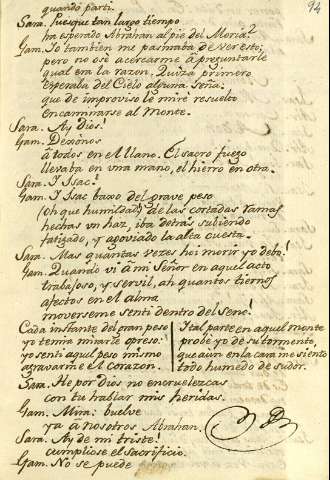 94
quando parti.
Sara. Puesque tan largo tiempo
ha esperado Abrahan al pie del Moria?
Gam. Yo tambien me pasmaba de ver esto;
pero no osè acercarme à preguntarle
qual era la razon. Quizà primero
esperaba del Cielo alguna seña:
que de improviso le mirè resuelto
encaminarse al Monte.
Sara. Ay Dios!
Gam. Dexònos
à todos en el llano. El sacro fuego
llevaba en vna mano, el hierro en otra.
Sara. Y Isac?
Gam. Y Isac baxo del grave peso
(oh que humildad) de las cortadas ramas
hechas vn haz, iba detras subiendo
fatigado, y agoviado la alta cuesta.
Sara. Mas quantas vezes hoi morir yo debo!
Gam. Quando vi à mi Señor en aquel acto
trabajoso, y servil, ah quantos tiernos
afectos en el alma
moverseme sentì dentro del seno!
Cada instante del gran peso
yo temia mirarle opreso:
yo sentì aquel peso mismo
agravarme el corazon.
Y tal parte en aquel monte
probè yo de su tormento,
que aun en la cara me siento
todo humedo de sudor.
Sara. He por Dios no encruelezcas
con tu hablar mis heridas.
Gam. Mira: buelve
ya à nosotros Abrahan,
Sara. Ay de mi triste!
cumpliose el sacrificio.
Gam. No se puede